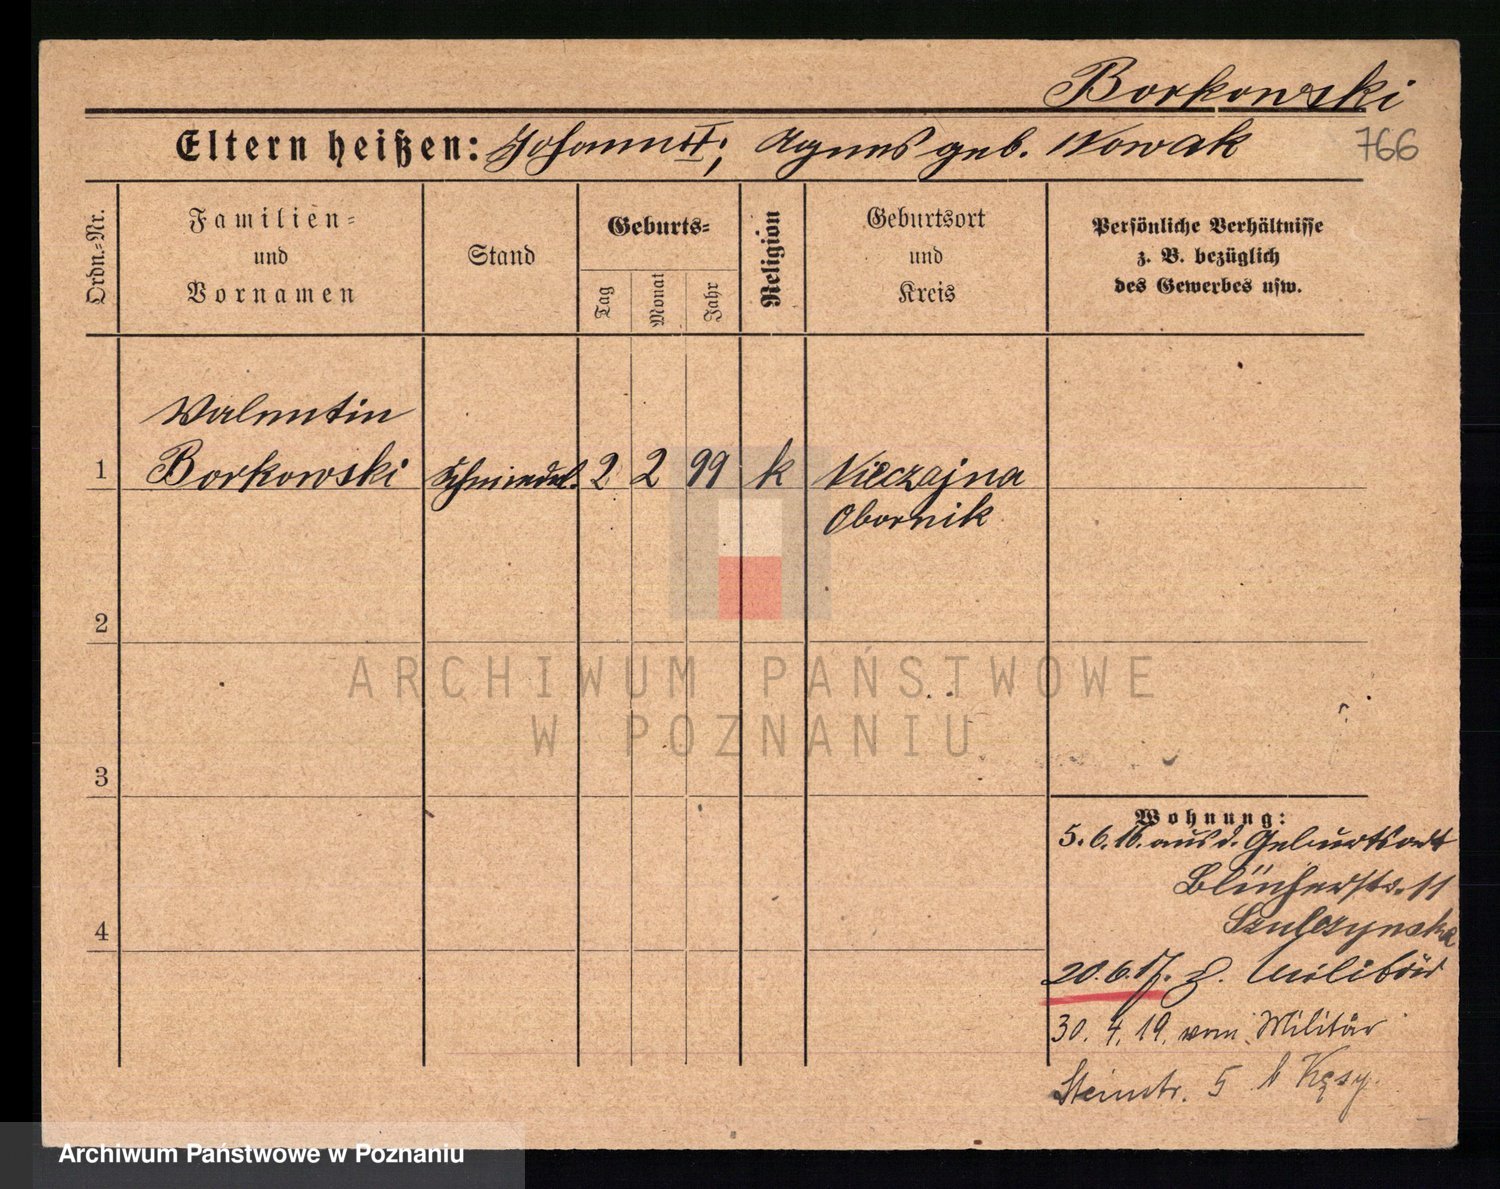 Borkowski
Eltern heißen: Johann II; Agnes geb. Nowak
766
Ordn.-Nr.
Familien-
und
Vornamen
Stand
Geburts-
Tag
Monat
Jahr
Religion
Geburtsort
und
Kreis
Persönliche Verhältnisse
z. B. bezüglich
des Gewerbes usw.
Valentin
1 Borkowski Schmiedel. 2 2 99 k Nieczajna
Obornik
2
ARCHIWUM PAŃSTWOWE
W POZNANIU
3
Wohnung:
5.6.16. aus d. Geburtsort
Blücherstr. 11
Szulczynska
4
20.6.17. z. Militär
30.4.19. vom Militär
Steinstr. 5 b Kęsy.
Archiwum Państwowe w Poznaniu